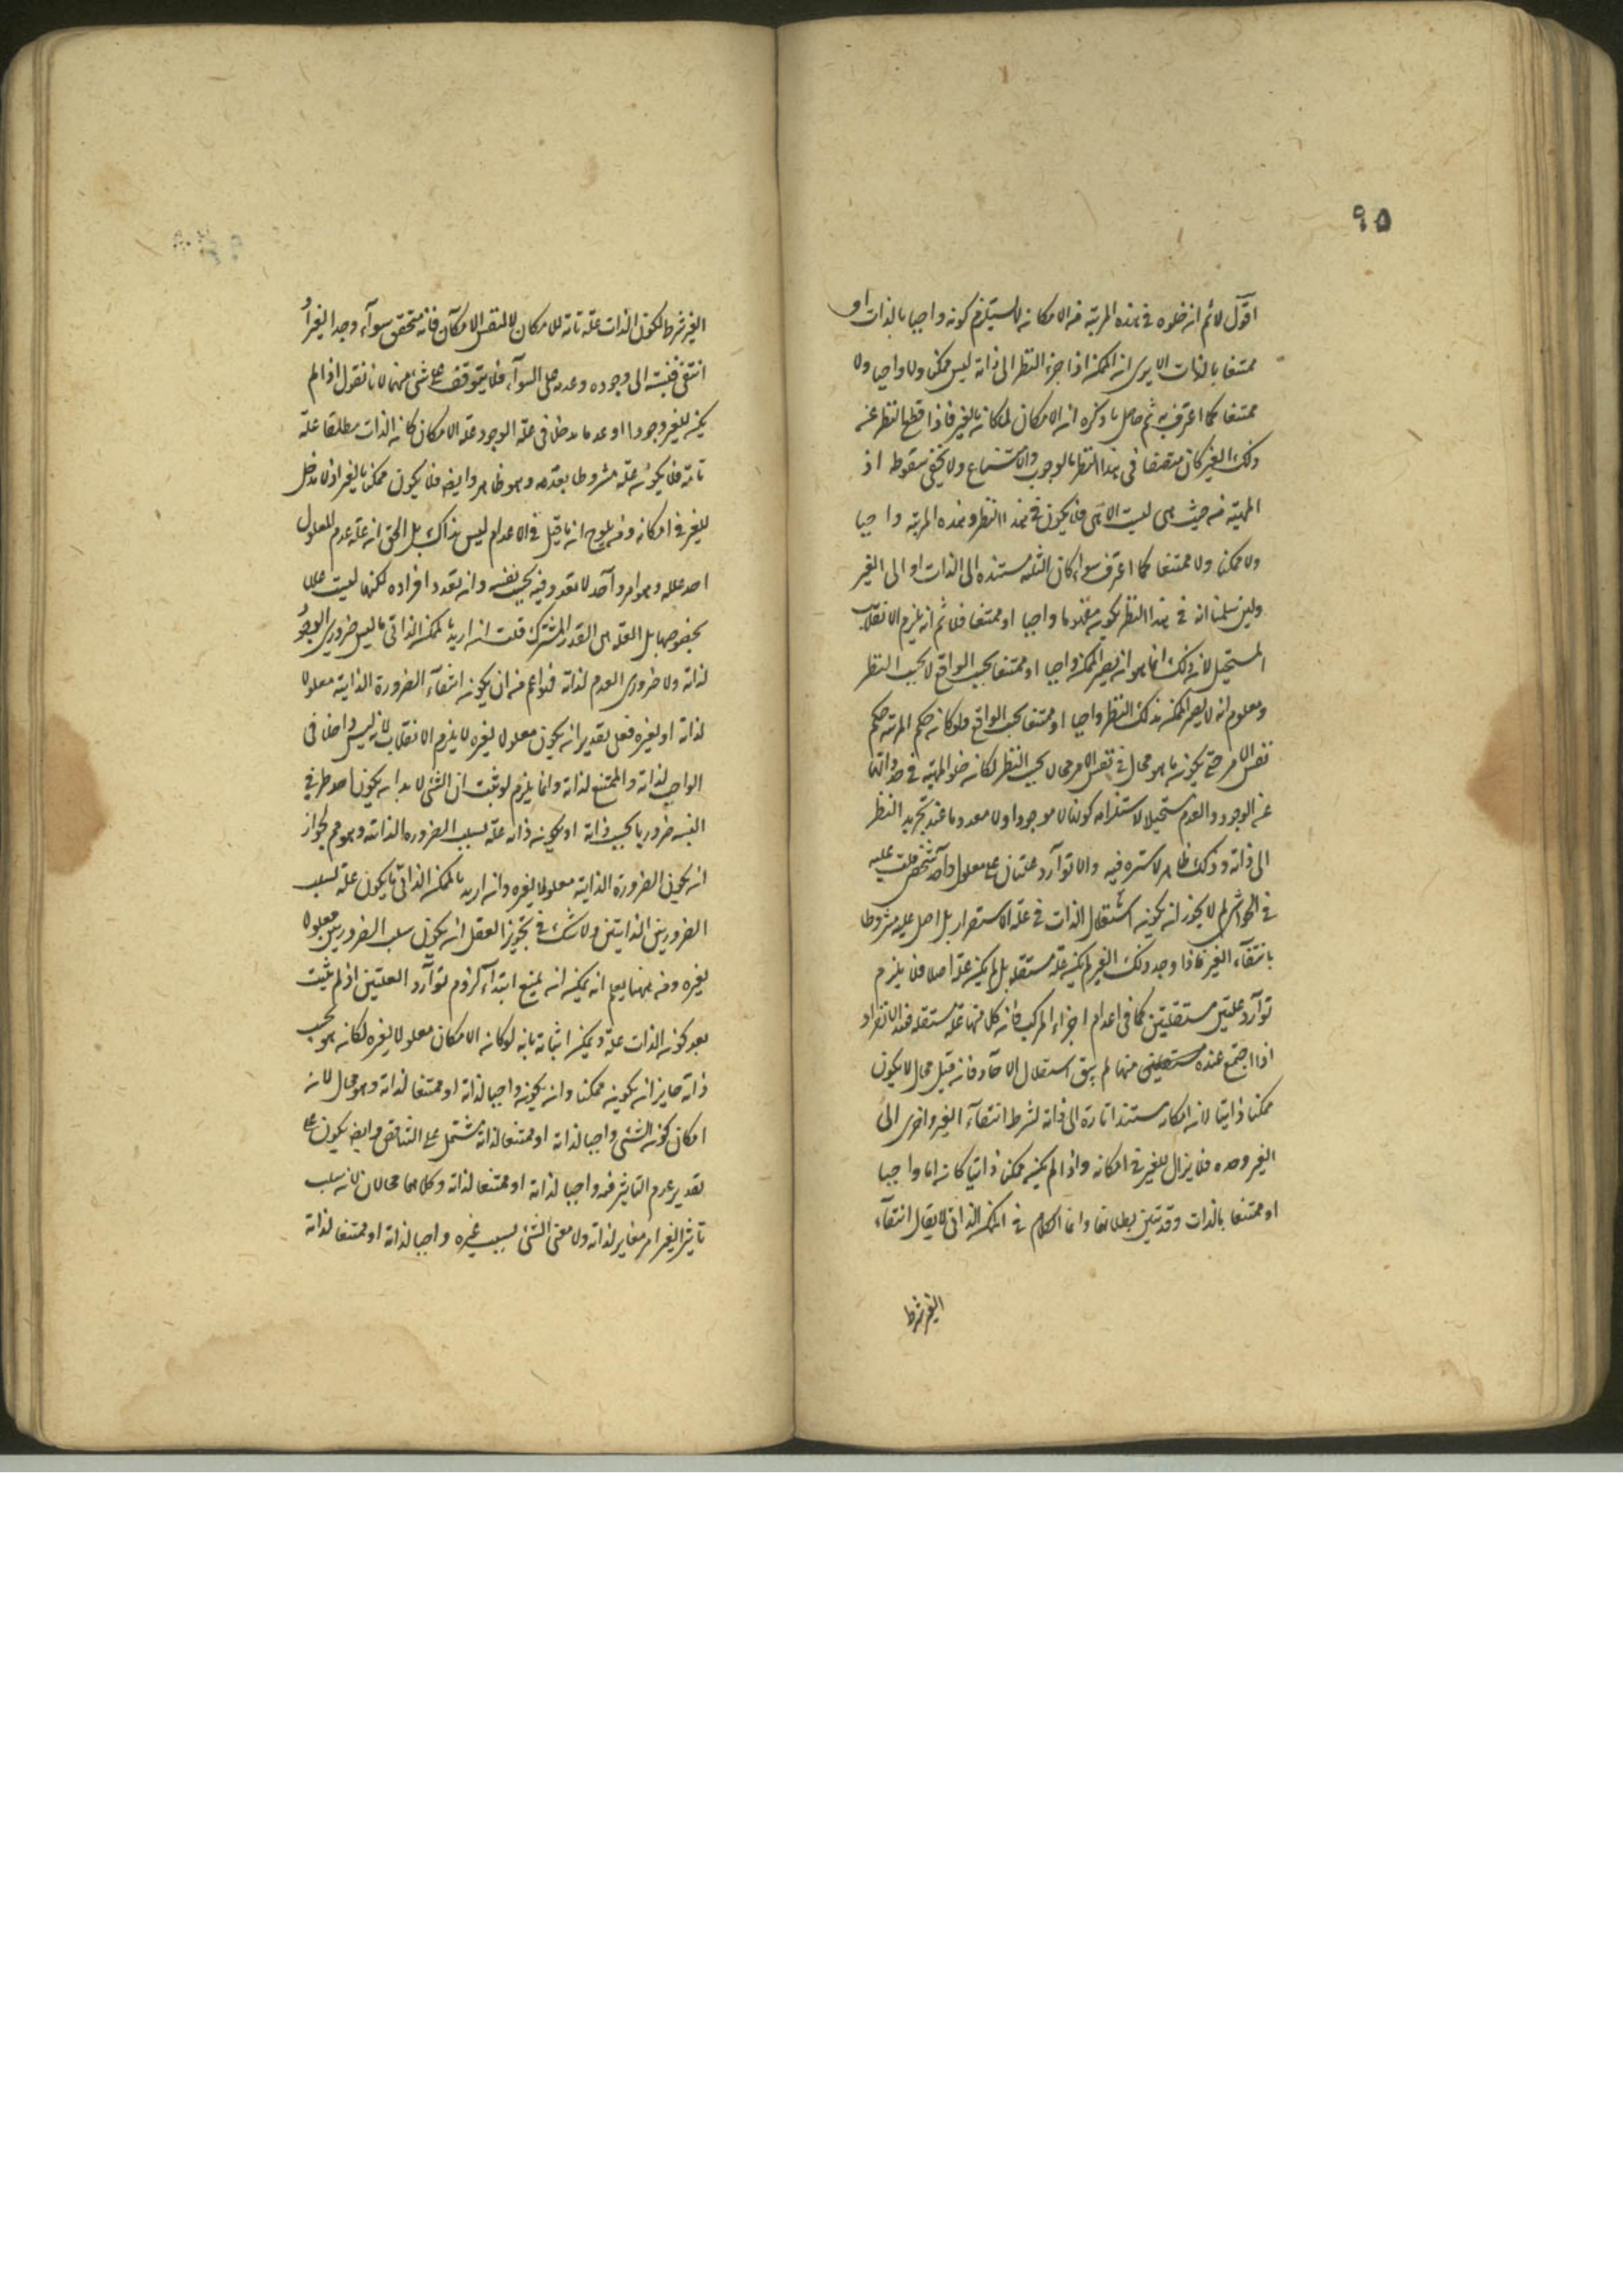 ٩٥
اقول لا ثم ان خلوه فى هذه المرتبة من الامكان لا يستلزم كونه واجبا بالذات او
ممتنعا بالذات الا يرى ان الممكن اذا جرد النظر الى ذاته ليس ممكنا ولا واجبا ولا
ممتنعا كما اعترف به ثم حاصل ما ذكره ان الامكان لما كان بالغير فاذا قطع النظر عن
ذلك الغير كان متصفا فى هذا النظر بالوجوب والامتناع ولا يخفى سقوطه اذ
المهية من حيث هى ليست الا هى فلا يكون فى هذا النظر وهذه المرتبة واجبا
ولا ممكنا ولا ممتنعا كما اعترف سواء كان الثلثة مستنده الى الذات او الى الغير
ولين سلمنا ان فى هذا النظر يكون واجبا او ممتنعا فلا ثم انه يلزم الانقلاب
المستحيل لان ذلك انما هو ان يصير الممكن واجبا او ممتنعا بحسب الواقع لا بحسب النظر
ومعلوم انه لا يصير الممكن بذلك النظر واجبا او ممتنعا بحسب الواقع فلو كان حكم المرتبة حكم
نفس الامر حتى يكون ما هو محال فى نفس الامر محالا بحسب النظر لكان خلو المهية فى حد ذاتها
عن الوجود والعدم مستحيلا لاستلزامه كونها لا موجودا ولا معدوما عند تجريد النظر
الى ذاته وذلك ظاهر لا سترة فيه والا توارد علتان على معلول واحد شخصى قلت عليه
فى الحواشى لم لا يجوز ان يكون استقلال الذات فى علة الاستمرار بل اصل عليه مشروطا
بانتفاء الغير فاذا وجد ذلك الغير لم يكن علة مستقلة بل لم يكن علة اصلا فلا يلزم
توارد علتين مستقلتين كما فى اعدام اجزاء المركب فان كلا منها علة مستقلة عند الانفراد
اذا اجتمع عدة منها لم يبق استقلال الآحاد فان قيل محال لا يكون
ممكنا ذاتيا لان امكانه مستند تارة الى ذاته لشرط انتفاء الغير واخرى الى
الغير وحده فلا يزال للغير فى امكانه واذا لم يكن ممكنا ذاتيا كان اما واجبا
او ممتنعا بالذات وقد تبين بطلانها وانما الكلام فى الممكن الذاتى لا يقال انتفاء
الغير شرط
الغير شرط لكون الذات علة تامة للامكان لا لنفس الامكان فانه متحقق سواء وجد الغير او
انتفى فنسبته الى وجوده وعدمه على السواء فلا يتوقف على شئ منهما لانا نقول اذا لم
يكن للغير وجودا او عدما مدخل فى علة الوجود علة الامكان كان الذات مطلقا علة
تامة فلا يكون علة مشروطا بعدمه وهو ظاهر وايضا فلا يكون ممكنا بالغير اذ لا مدخل
للغير فى امكانه ومنه يلوح ان ما قيل فى الاعدام ليس بذاك بل الحق ان علة عدم المعلول
احد علله وهو امر واحد لا تعدد فيه بحسب نفسه وان تعدد افراده لكنها ليست عللا
بخصوصها بل العلة هى القدر المشترك قلت ان اريد بالممكن الذاتى ما ليس ضرورى الوجود
لذاته ولا ضرورى العدم لذاته فهو اعم من ان يكون انتفاء الضرورة الذاتية معلولا
لذاته او لغيره فعلى تقدير ان يكون معلولا لغيره لا يلزم الانقلاب لانه ليس داخلا فى
الواجب لذاته والممتنع لذاته وانما يلزم لو ثبت ان الشئ لا بد ان يكون احد طرفى
النسبة ضروريا بحسب ذاته او يكون ذاته علة لسلب الضرورة الذاتية وهو مم لجواز
ان يكون الضرورة الذاتية معلولا لغيره وان اريد بالممكن الذاتى ما يكون علة لسلب
الضرورتين الذاتيتين ولا شك فى تجويز العقل ان يكون سلب الضرورتين معلولا
لغيره ومن ههنا يعلم انه يمكن ان يمنع ابتداء لزوم توارد العلتين اذ لم يثبت
بعد كون الذات علة ويمكن اثباته بانه لو كان الامكان معلولا لغيره لكان هو بحسب
ذاته جايز ان يكون ممكنا وان يكون واجبا لذاته او ممتنعا لذاته وهو محال لان
امكان كون الشئ واجبا لذاته او ممتنعا لذاته مشتمل على التناقض وايضا يكون على
تقدير عدم التاثير فيه واجبا لذاته او ممتنعا لذاته وكلاهما محالان لانه سلب
تاثير الغير امر مغاير لذاته ولا معنى الشئ بسبب غيره واجبا لذاته او ممتنعا لذاته